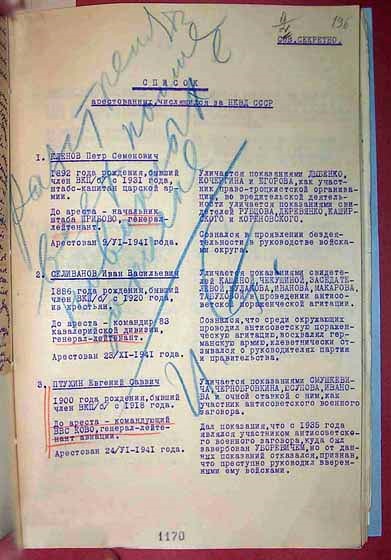 196
СОВ.СЕКРЕТНО.
СПИСОК
арестованных, числящихся за НКВД СССР
1. КЛЕНОВ Петр Семенович
1892 года рождения, бывший
член ВКП/б/ с 1931 года,
штабс-капитан царской ар-
мии.
До ареста - начальник
штаба ПРИБВО, генерал-
лейтенант.
Арестован 9/VI-1941 года.
Уличается показаниями
КОЧЕРГИНА и ЕГОРОВА, как учас-
тник право-троцкистской организа-
ции, во вредительской деятель-
ности уличается показ. свиде-
телей РУБЦОВА, ДЕРЕВЯНКО, КАШИР-
СКОГО и КОРЕНОВСКОГО.
Сознался в проявлении бездея-
тельности в руководстве войска-
ми округа.
2. СЕЛИВАНОВ Иван Васильевич
1886 года рождения, бывший
член ВКП/б/ с 1920 года,
из крестьян.
До ареста - командир 83
кавалерийской дивизии,
генерал-лейтенант.
Арестован 23/XI-1941 года.
Уличается показаниями свидете-
лей КАШИНОЙ, ЧЕКУНИНОЙ, ИВАНОВА, МАКАРОВА,
в проведении антисо-
ветской агитации.
Сознался, что среди окружающих
проводил антисоветскую пораженчес-
кую агитацию, восхвалял гер-
манскую армию, клеветнически от-
зывался о руководителях партии
и правительства.
3. ПТУХИН Евгений Саввич
1900 года рождения, бывший
член ВКП/б/ с 1918 года.
До ареста - командующий
ВВС КОВО, генерал-лейте-
нант авиации.
Арестован 24/VI-1941 года.
Уличается показаниями СМУШКЕВИ-
ЧА, ЧЕРНОБРОВКИНА, ЮСУПОВА, ИВАНО-
ВА и очной ставкой с ним, как
участник антисоветского военного
заговора.
Дал показания, что с 1935 года
являлся участником антисоветс-
кого военного заговора, куда был
завербован УБОРЕВИЧЕМ, но от дан-
ных показаний отказался, признав,
что преступно руководил вверен-
ными ему войсками.
1170